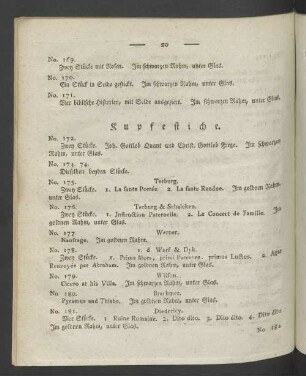 20
No. 169.
Zwey Stücke mit Rosen. Im schwarzen Rahm, unter Glas.
No. 170.
Ein Stück in Seide gestickt. Im schwarzen Rahm, unter Glas.
No. 171.
Vier biblische Historien, mit Seide ausgeziert. Im schwarzen Rahm, unter Glas.
Kupferstiche.
No. 172.
Zwey Stücke. Joh. Gottlieb Quant und Christ. Gottlob Frege. Im schwarzen
Rahm, unter Glas.
No. 173. 74.
Dieselben beyden Stücke.
No. 175. Terburg.
Zwey Stücke. 1. La fante Permée. 2. La fante Rendue. Im goldnen Rahm,
unter Glas.
No. 176. Terburg & Schalcken.
Zwey Stücke. 1. Instruktion Paternelle. 2. Le Concert de Famille. Im
goldnen Rahm, unter Glas.
No. 177. Werner.
Naufrage. Im goldnen Rahm.
No. 178. v. d. Werf & Dyk.
Zwey Stücke. 1. Prima Mors, primi Parentes, primus Luctus. 2. Agar
Renvoyée par Abraham. Im goldnen Rahm, unter Glas.
No. 179. Wilson.
Cicero at his Villa. Im schwarzen Rahm, unter Glas.
No. 180.
Pyramus und Thisbe. Im goldnen Rahm, unter Glas.
No. 181. Dietericy.
Vier Stücke. 1 Ruine Romaine. 2. Dito dito. 3. Dito dito. 4. Dito dito.
Im goldnen Rahm, unter Glas.
No. 182